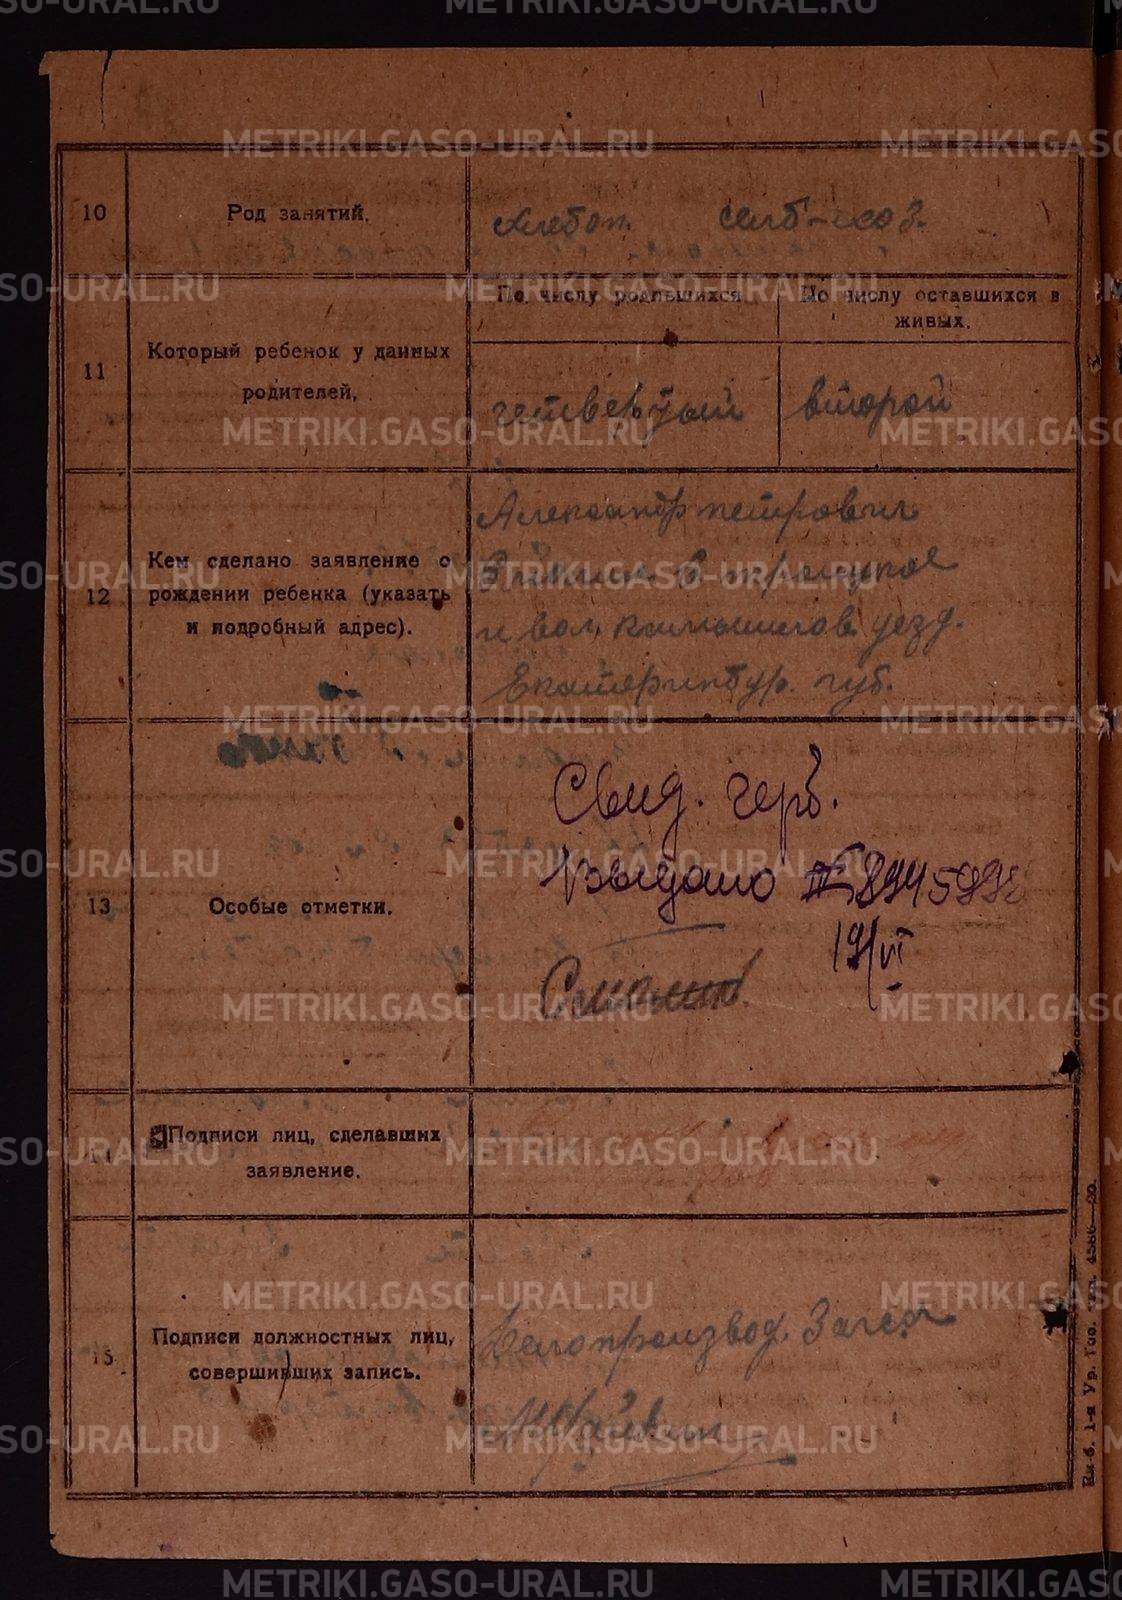 METRIKI.GASO-URAL.RU
10
Род занятий.
хлебоп. сельб-хоз.
11
Который ребенок у данных
родителей.
По числу родившихся
По числу оставшихся в
живых.
четвертый
второй
12
Кем сделано заявление о
рождении ребенка (указать
и подробный адрес).
Александр петрович
в троицкое
и вол. камышлов. уезд.
Екатеринбур. губ.
13
Особые отметки.
Свид. герб.
выдано
19/VI
14
Подписи лиц, сделавших
заявление.
15
Подписи должностных лиц,
совершивших запись.
Делопроизвод. Загса
1-я Ур. Гос. Тип. 4586—20.